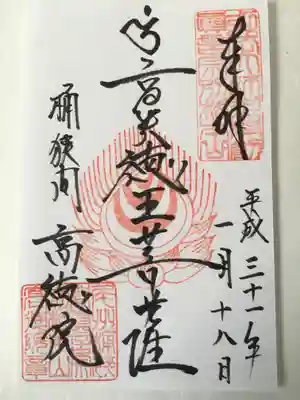 奉拝
平成三十一年
一月十八日
高貴徳王菩薩
桶狭間
高徳院